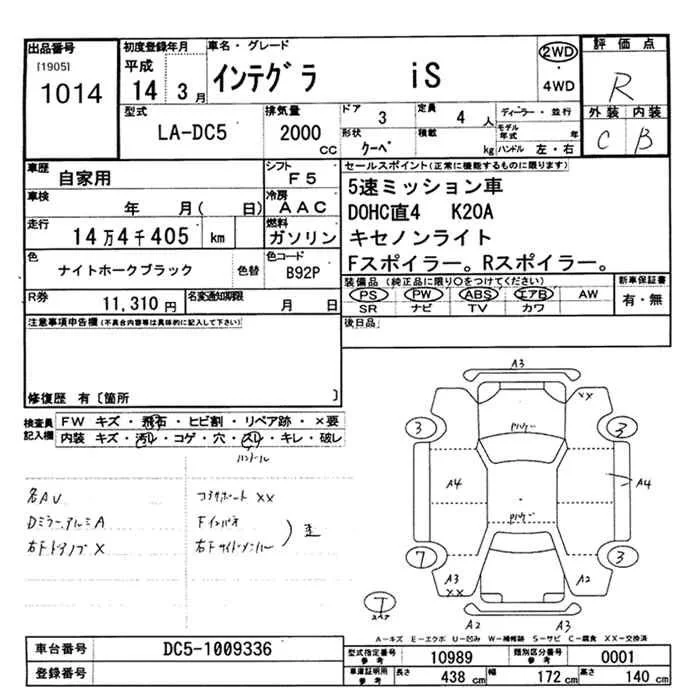 出品番号
[1905]
1014
初度登録年月
平成
14 年 3 月
車名・グレード
インテグラ iS
2WD
・
4WD
評価点
R
外装 内装
C B
型式
LA-DC5
排気量
2000
CC
ドア 3
定員 4 人
形状 クーペ
積載 kg
ディーラー・並行
モデル年式 年
ハンドル 左・右
車歴
自家用
シフト
F5
車検
年 月( 日)
冷房
AAC
走行
14万4千405 km
燃料
ガソリン
色
ナイトホークブラック 色替
色コード
B92P
R券
11,310 円
名変通知期限
月 日
セールスポイント(正常に機能するものに限ります)
5速ミッション車
DOHC直4 K20A
キセノンライト
Fスポイラー。Rスポイラー。
装備品(純正品に限り○をつけてください)
PS PW ABS エアB AW
SR ナビ TV カワ
新車保証書
有・無
後日品
注意事項申告欄(不具合内容等は具体的に記入して下さい)
修復歴 有〔箇所 〕
検査員
記入欄
FW キズ・飛石・ヒビ割・リペア跡・×要
内装 キズ・汚レ・コゲ・穴・スレ・キレ・破レ
ハンドル
名AV
Dミラー,アルミA
右Fドアノブ X
コアサポート XX
Fインパネ
右Fサイドメンバー
A3
XX
3
3
A4
A4
7
3
A3
XX
A2
A2
A3
T
スペア
A-キズ E-エクボ U-凹み W-補修跡 S-サビ C-腐食 XX-交換済
車台番号
DC5-1009336
登録番号
型式指定番号
参考
10989
類別区分番号
参考
0001
車庫証明用
参考
長さ 438 cm 幅 172 cm 高さ 140 cm